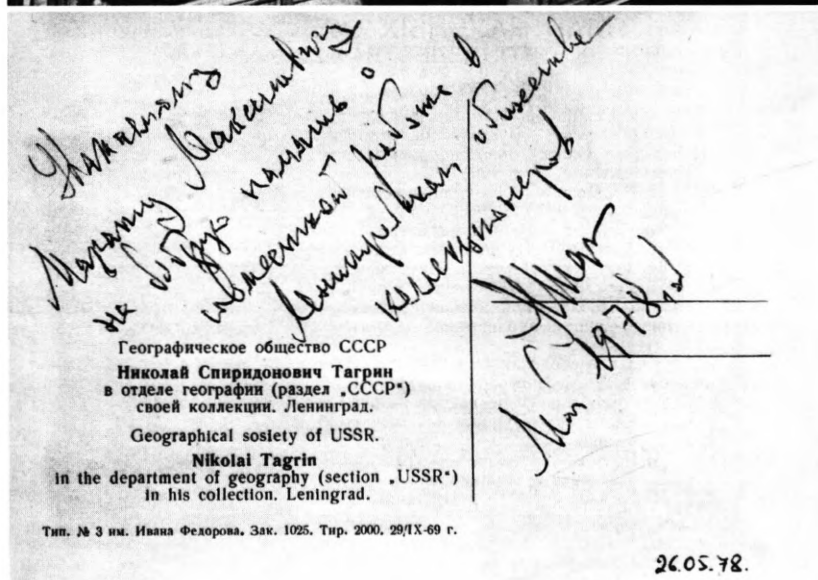 Уважаемому
Марату Максимовичу
на добрую память о
совместной работе в
Ленинградском обществе
коллекционеров
Май 1978 г.
Географическое общество СССР
Николай Спиридонович Тагрин
в отделе географии (раздел „СССР“)
своей коллекции. Ленинград.
Geographical sosiety of USSR.
Nikolai Tagrin
in the department of geography (section „USSR“)
in his collection. Leningrad.
Тип. № 3 им. Ивана Федорова. Зак. 1025. Тир. 2000. 29/IX-69 г.
26.05.78.